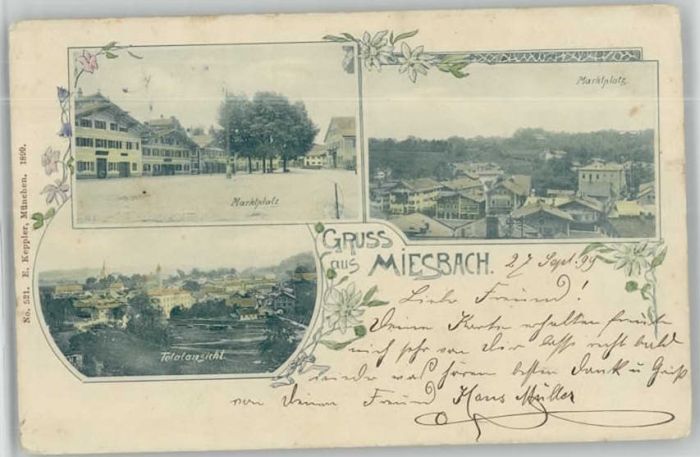 No. 521. E. Keppler, München. 1899.
Marktplatz
Marktplatz
Totalansicht.
GRUSS
aus MIESBACH.
27 Sept. 99
Liebe Freund!
Deine Karte erhalten freute
mich sehr von Dir lasse recht bald
wieder was hören besten Dank u Gruß
von Deinem Freund Hans Müller